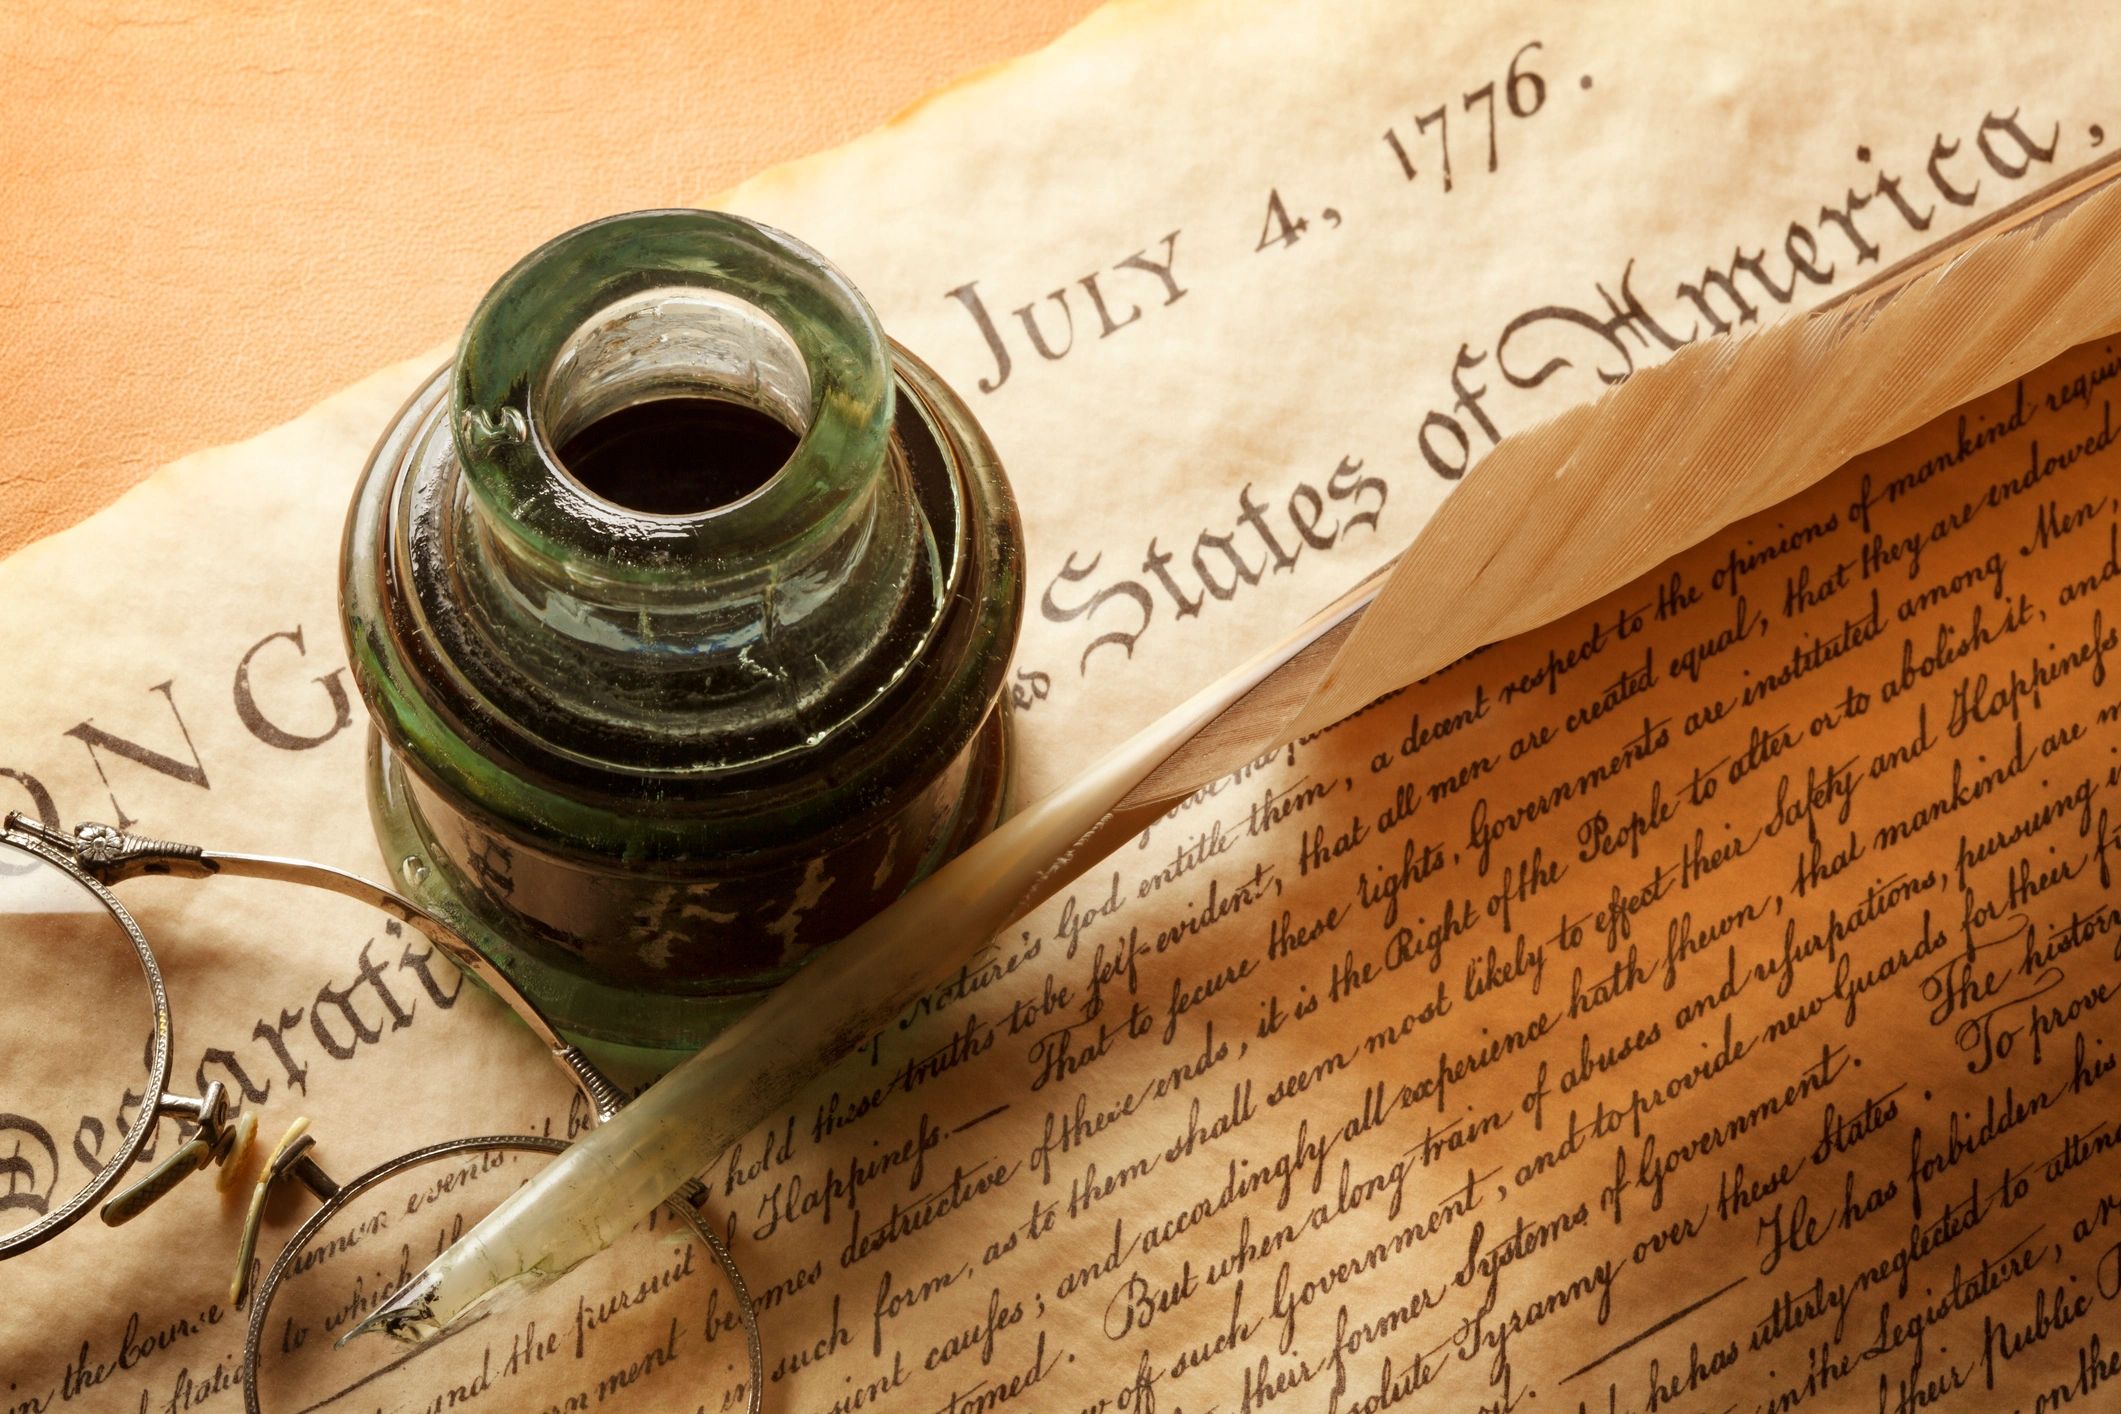 ONG JULY 4, 1776.
Declarati ed States of America,
in the Course of human events, it be
to which th God entitle them, a decent respect to the opinions of mankind requi
hold these truths to be self-evident, that all men are created equal, that they are endowed
and the pursuit of Happiness.— That to secure these rights, Governments are instituted among Men,
ernment becomes destructive of these ends, it is the Right of the People to alter or to abolish it, and
in such form, as to them shall seem most likely to effect their Safety and Happiness
sient causes; and accordingly all experience hath shewn, that mankind are m
tomed. But when a long train of abuses and usurpations, pursuing i
w off such Government, and to provide new Guards for their f
their former Systems of Government. The history
solute Tyranny over these States. To prove
d. — He has forbidden his
he has utterly neglected to atten
in the Legislature, a
f their Public
on the